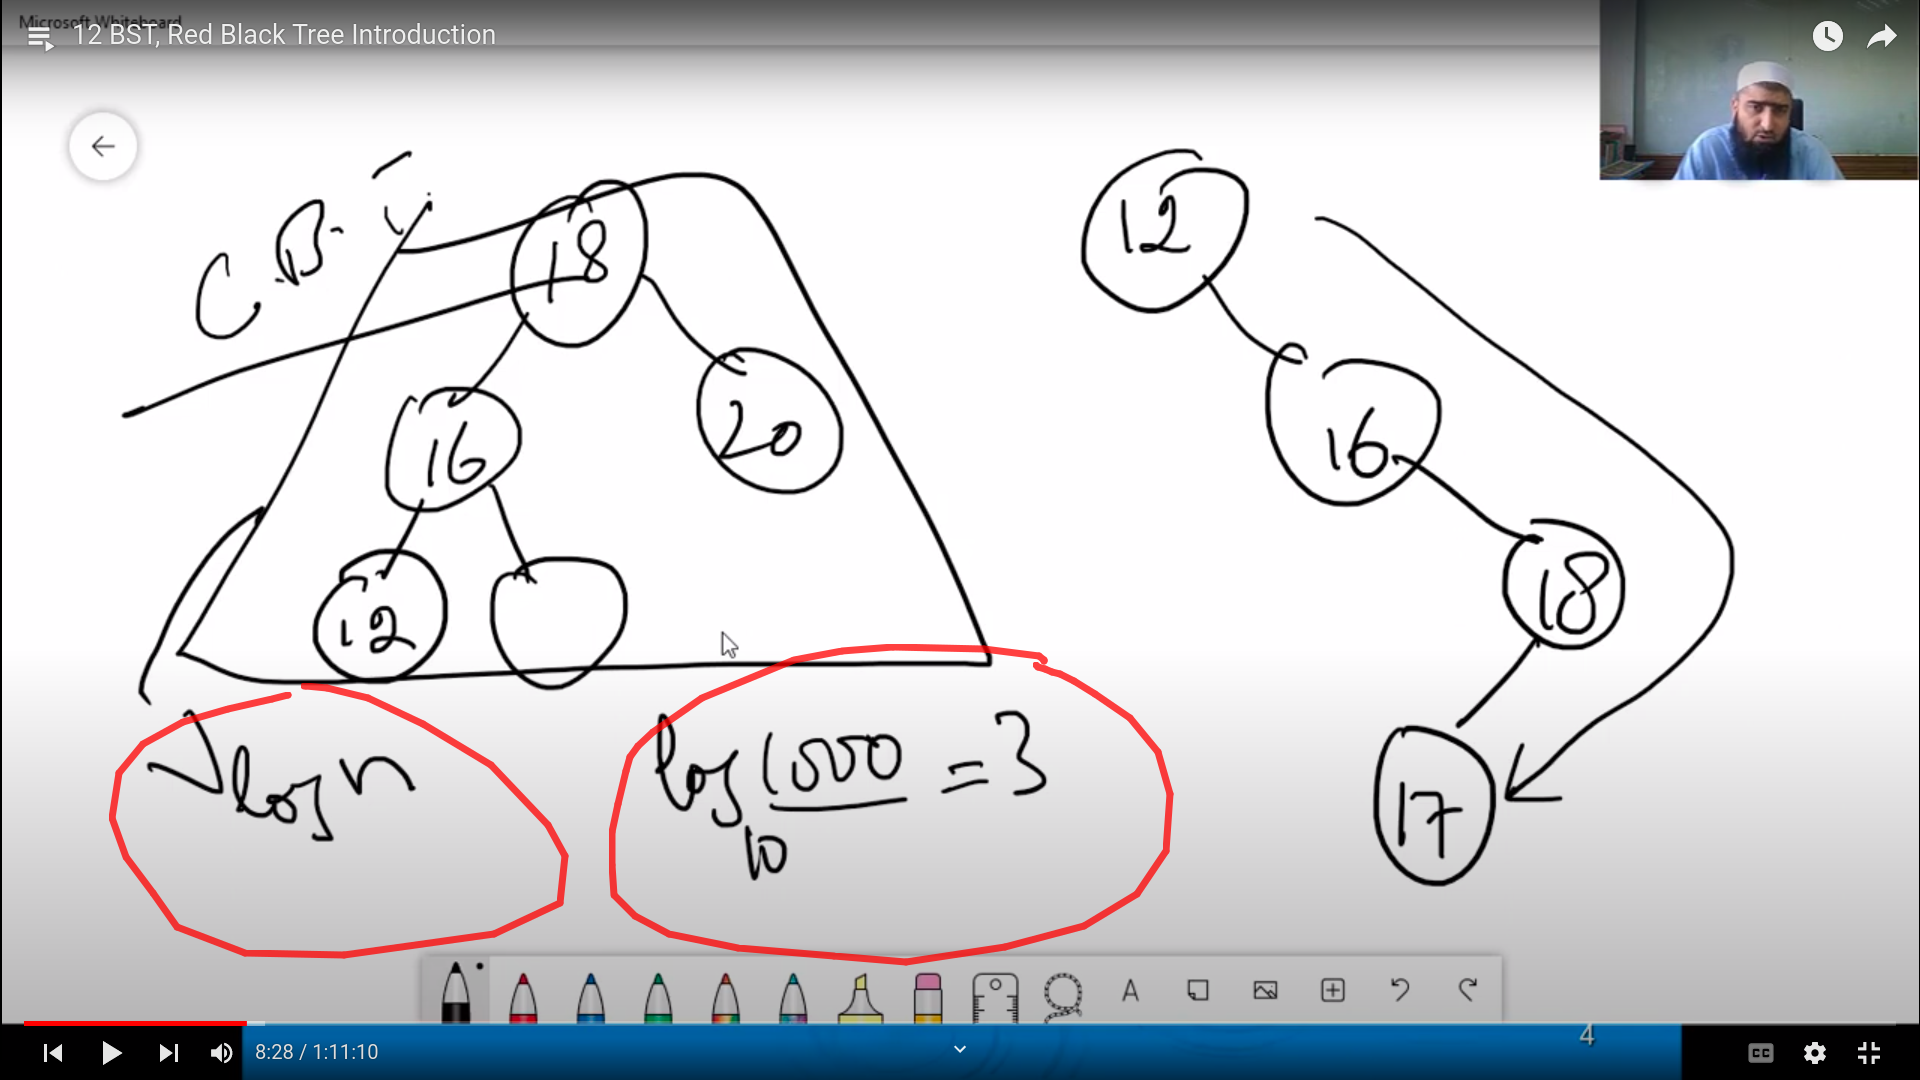 Microsoft Whiteboard
12 BST, Red Black Tree Introduction
C.B.T
18
16
20
12
12
16
18
17
log n
log 1000 = 3
10
A
4
8:28 / 1:11:10
CC